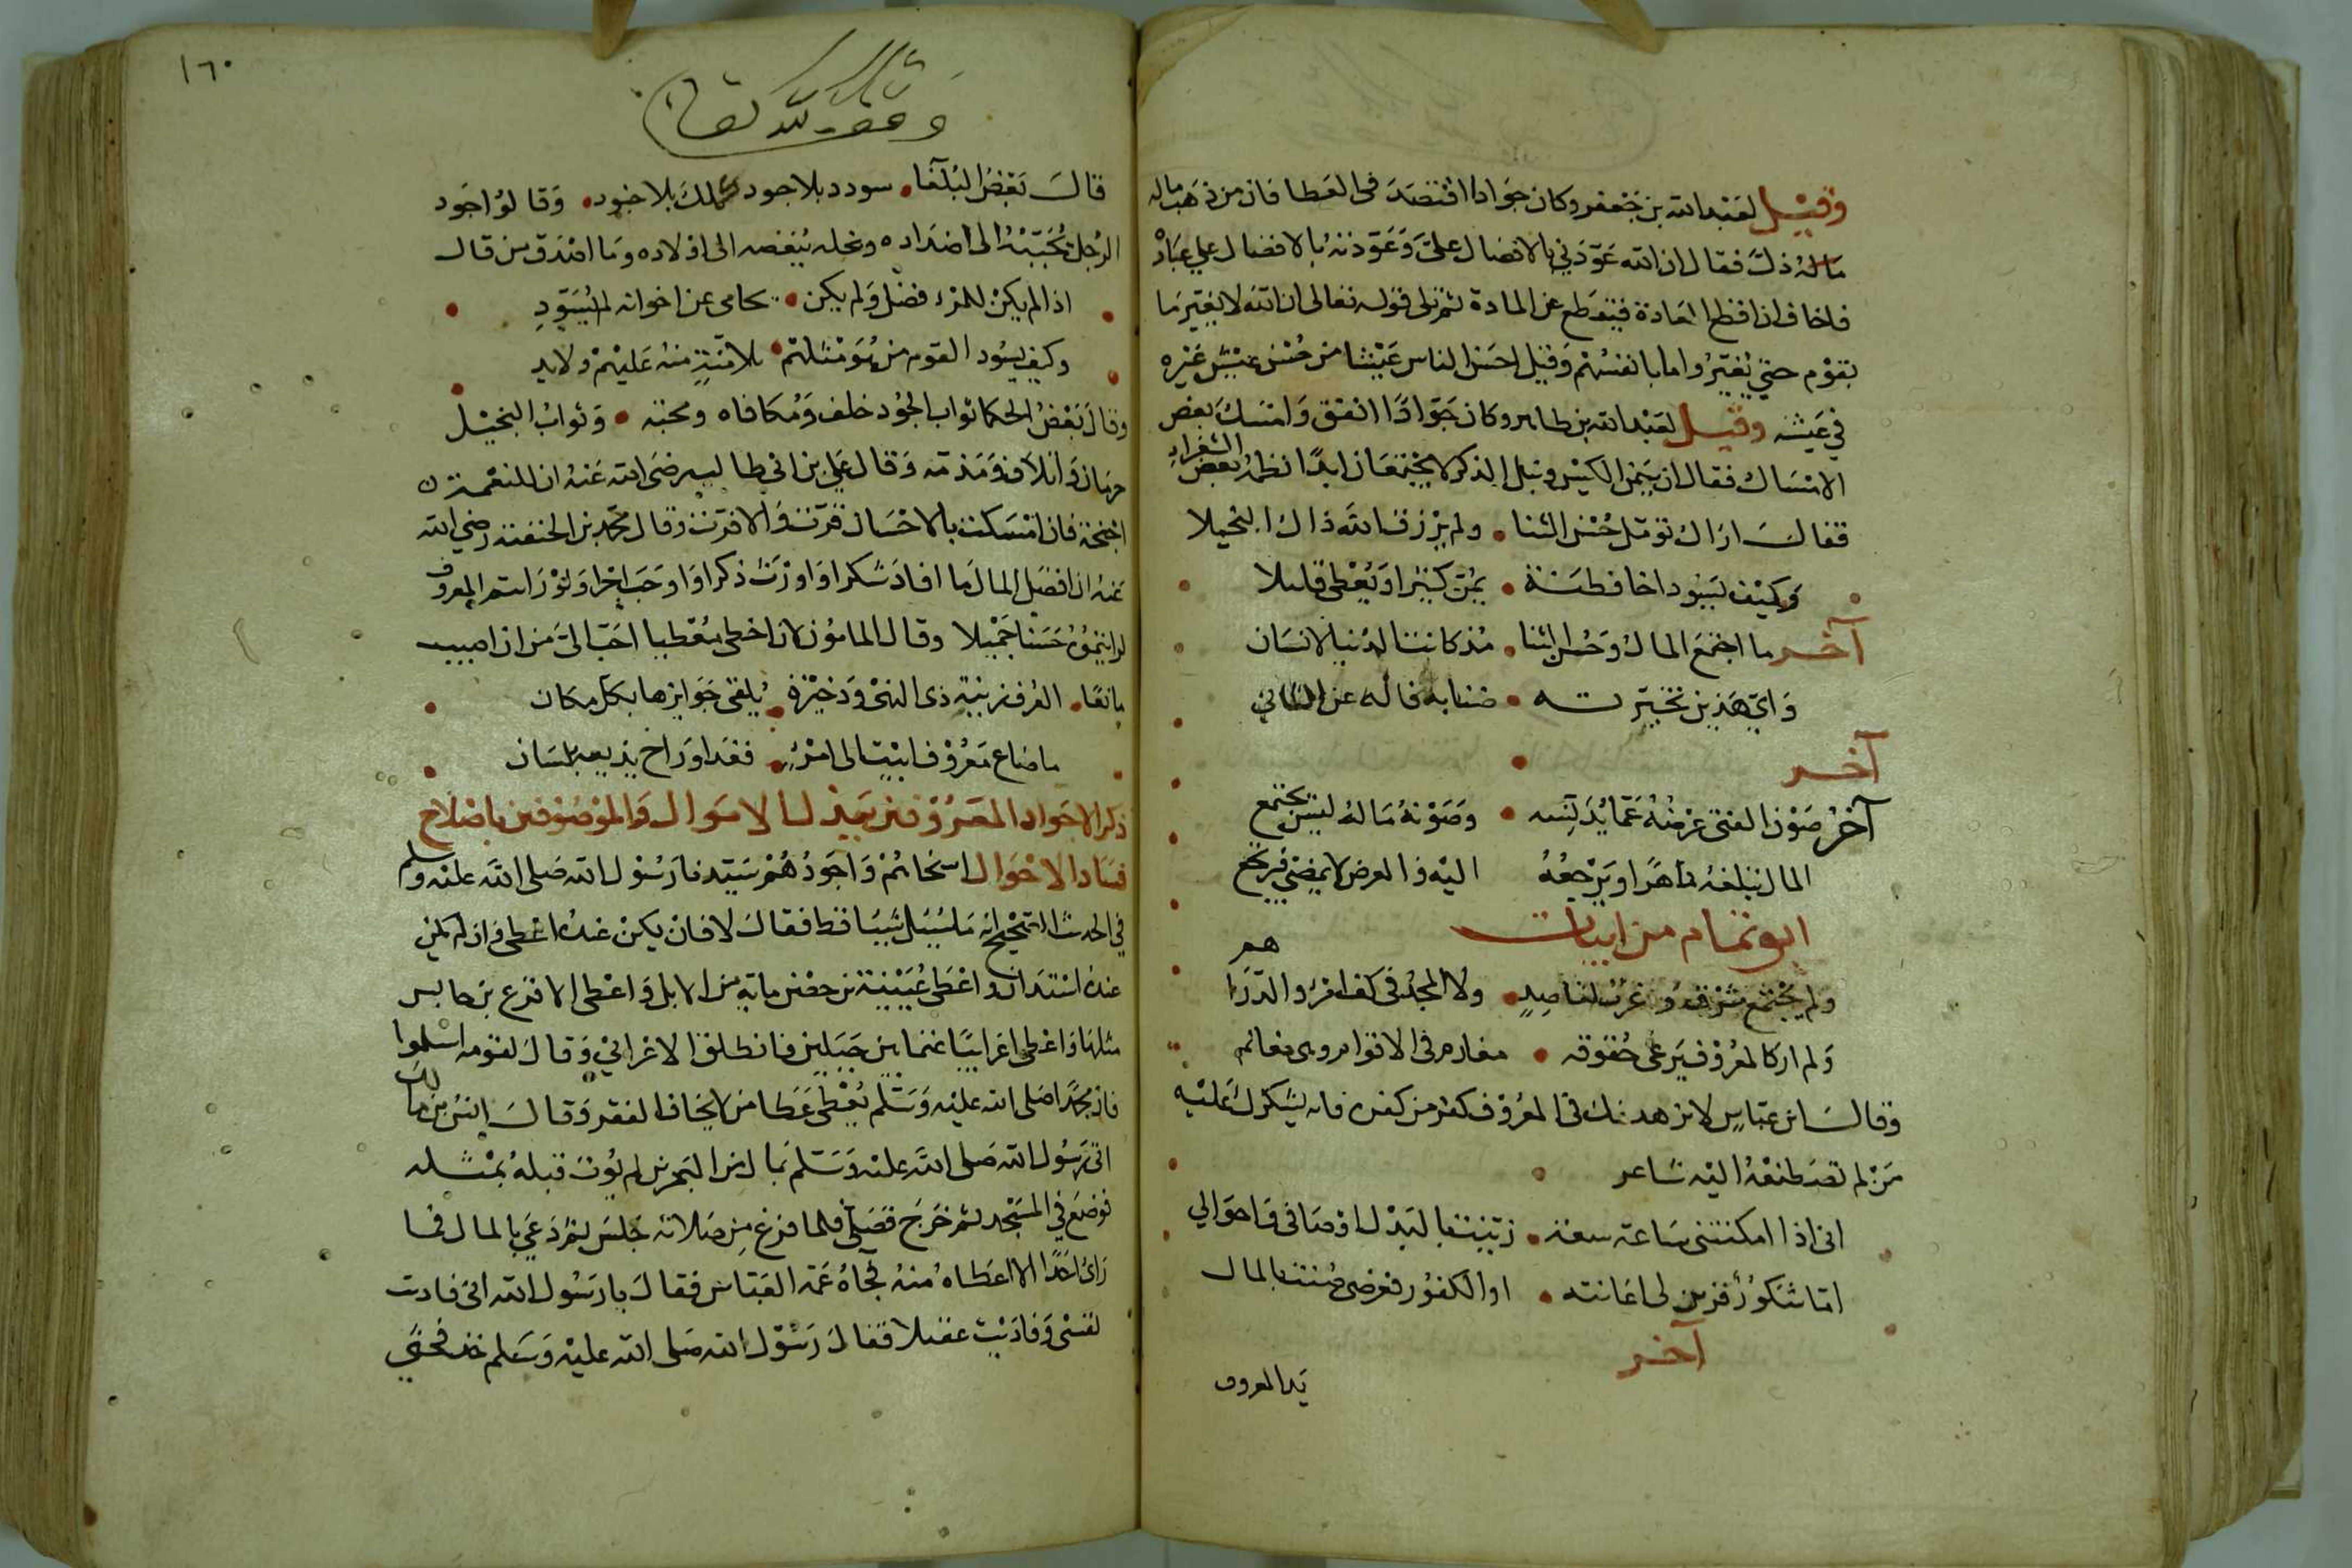 وقيل لعبد الله بن جعفر وكان جوادا اقتصد في العطا فان من ذهب ماله
ماله ذل فقال ان الله عودني بالافضال علي وعودته بالافضال علي عباده
فاخاف ان اقطع العادة فيقطع عني المادة ثم تلى قوله تعالى ان الله لا يغير ما
بقوم حتي يغيروا ما بانفسهم وقيل احسن الناس عيشا من حسن عيش غيره
في عيشه وقيل لعبد الله بن طاهر وكان جوادا انفق وامسك بعض
الامساك فقال ان يمن الكيس ونبل الذكر لا يجتمعان ابدا نظمه بعض الشعراء
فقال اراك تومل حسن الثنا • ولم يرزق الله ذاك البخيلا
وكيف يسود اخا فطنة • يمن كثيرا ويعطي قليلا
آخر ما اجتمع المال وحسن الثنا • مذ كانت الدنيا لانسان
واي هذين تخيرته • ضنا به فاله عن الثاني
آخر
آخر صون الفتى عرضه عما يدنسه • وصونه ماله ليس يجتمع
المال يتلفه ماهرا ويرجعه اليه والعرض لا يمضي فيرتجع
ابو تمام من ابيات
ولم يجتمع شرق وغرب لقاصد • ولا المجد في كف امرء والدراهم
ولم ار كالمعروف يرعى حقوقه • مغارم في الاقوام وهي مغانم
وقال ابن عباس لا يزهدنك في المعروف كفر من كفره فانه يشكرك عليه
من لم تصطنعه اليه شاعر
اني اذا امكنتني ساعة سعة • زينت بالبذل اوصافي واحوالي
اما شكور فزين لي اعانته • او الكفور فعرضي صنت بالمال
آخر
يد المعروف
١٦٠
وقف لله تعالى
قال بعض البلغا • سودد بلا جود كملك بلا جنود • وقالوا جود
الرجل يحببه الى اضداده وبخله يبغضه الى اولاده وما اصدق من قال
اذا لم يكن للمرء فضل ولم يكن • يحامي عن اخوانه لم يسود
وكيف يسود القوم من هو مثلهم • بلا منة منه عليهم ولا يد
وقال بعض الحكما ثواب الجود خلف ومكافاه ومحبته • وثواب البخيل
حرمان واتلاف ومذمة وقال علي بن ابي طالب رضي الله عنه ان للنعمة
اجنحة فان امسكت بالاحسان قرت والا فرت وقال محمد بن الحنفية رضي الله
عنه ان افضل المال ما افاد شكرا او اورث ذكرا او اوجب اجرا ولو رايتم المعروف
لرايتموه حسنا جميلا وقال المامون لان اخطي معطيا احب الي من ان اصيب
مانعا • العرف زينة ذي النهى وذخيرة • يلقى جوايزها بكل مكان
ما ضاع معروف اتيت الى امرء • فغدا وراح يذيعه بلسان
ذكر الاجواد المعروفين ببذل الاموال والموصوفين باصلاح
فساد الاحوال اسخاهم واجودهم سيدنا رسول الله صلى الله عليه وسلم
في الحديث الصحيح انه ما سيل شيا قط فقال لا فان يكن عنده اعطى وان لم يكن
عنده استدان واعطى عيينة بن حصن ماية من الابل واعطى الاقرع بن حابس
مثلها واعطى اعرابيا غنما بين جبلين فانطلق الاعرابي وقال لقومه اسلموا
فان محمدا صلى الله عليه وسلم يعطي عطا من لا يخاف الفقر وقال انس بن مالك
اتى رسول الله صلى الله عليه وسلم بمال من البحرين لم يوت قبله بمثله
فوضع في المسجد ثم خرج فصلى فلما فرغ من صلاته جلس ثم دعي بالمال فما
راى احدا الا اعطاه منه فجاه عمه العباس فقال يا رسول الله اني فاديت
نفسي وفاديت عقيلا فقال رسول الله صلى الله عليه وسلم خذ فحثي